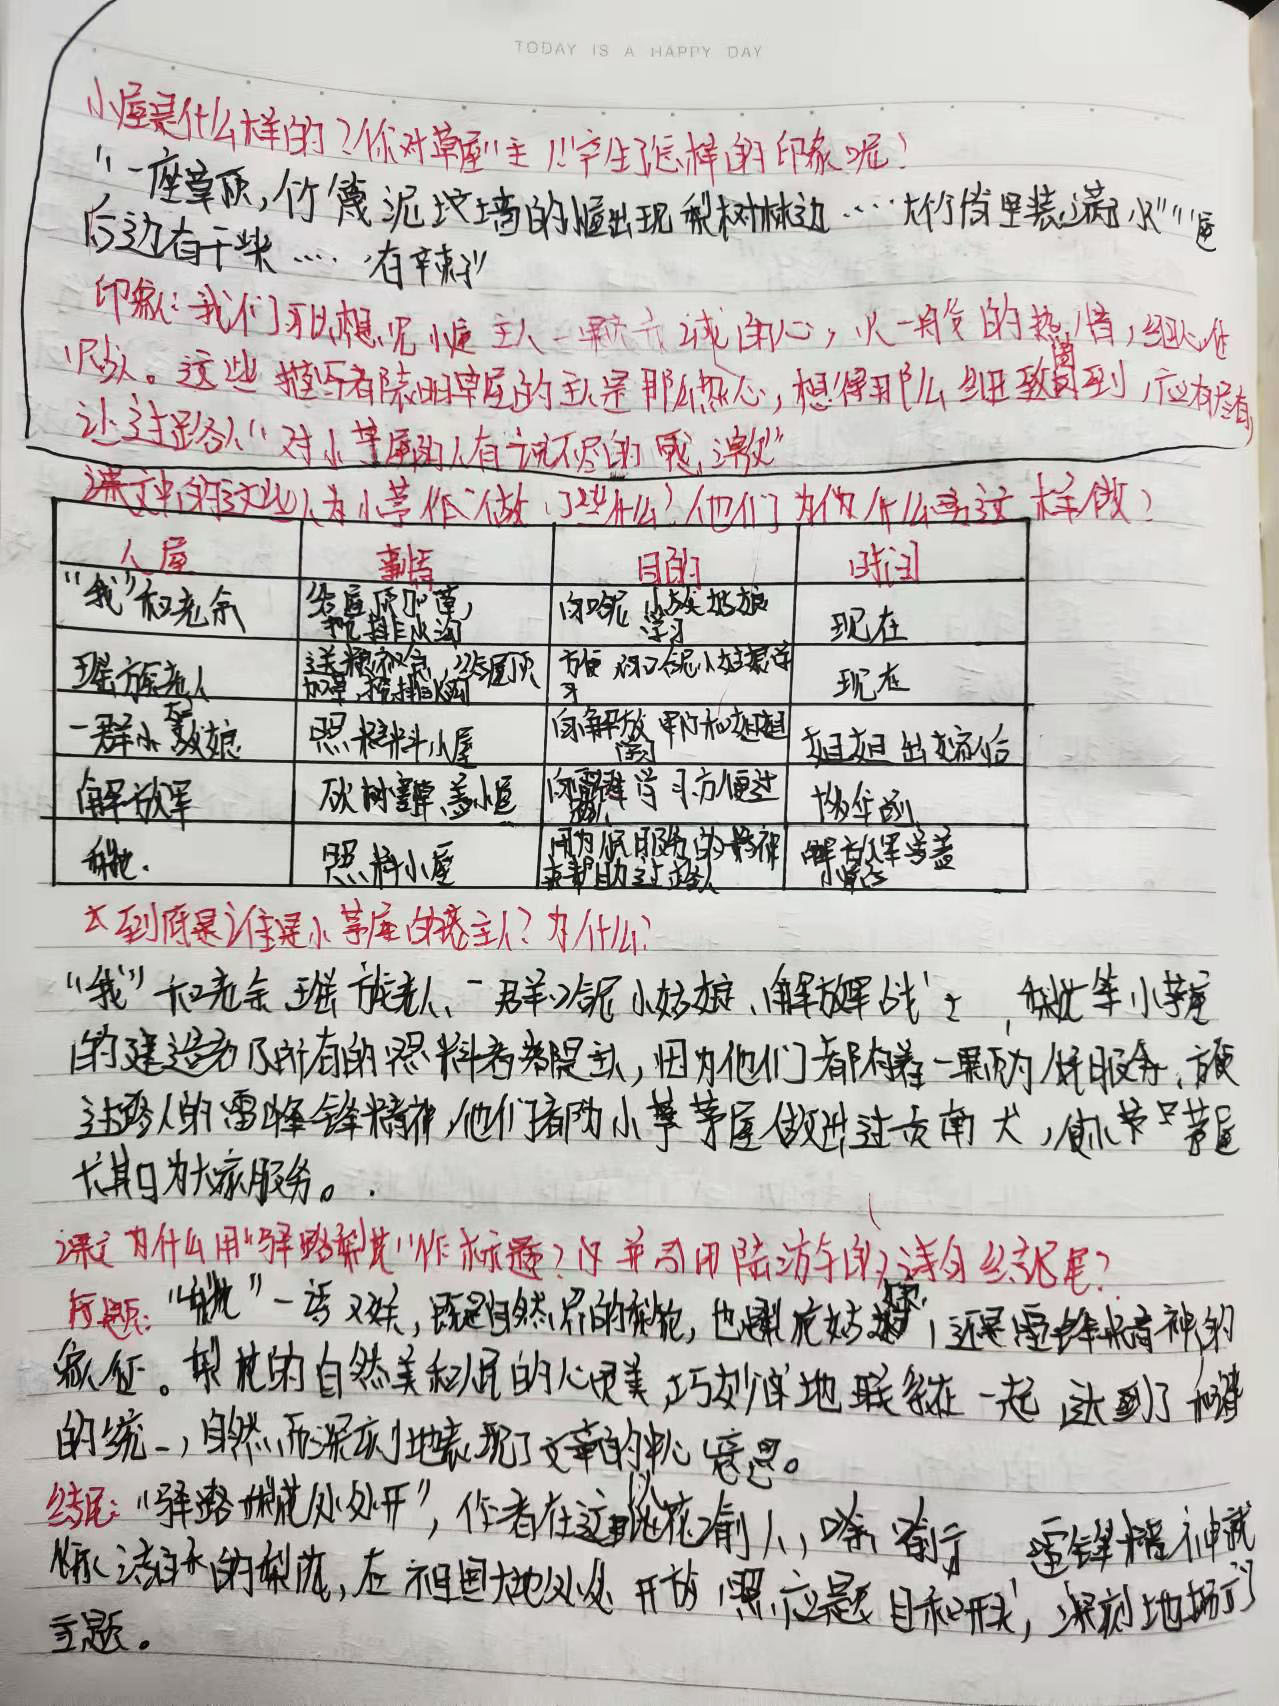 TODAY IS A HAPPY DAY
小屋是什么样的？你对草屋"主人"产生了怎样的印象呢？
"一座草顶，竹篾泥墙的小屋出现梨树林边……大竹筒里装满水""屋
后边有干柴……有辣子"
印象：我们可以想见小屋主人一颗赤诚的心，火一般的热情，细心
让过路人"对小茅屋的主人有说不尽的感激"
课文中的这些人为小茅屋做了些什么？他们为什么要这样做？
人屋 事情 目的 时间
"我"和老余 给屋顶加草，挖排水沟 向哈尼小姑娘学习 现在
瑶族老人 送粮食，给屋顶加草，挖排水沟 方便 哈尼小姑娘 现在
一群小姑娘 照料小屋 向解放军和姐姐学习 姐姐出嫁后
解放军 砍树割草盖小屋 向雷锋学习方便过路人 十多年前
梨花. 照料小屋 用为人民服务的精神来帮助过路人 解放军盖小屋后
到底是谁是小茅屋的主人？为什么？
"我"和老余、瑶族老人、一群哈尼小姑娘、解放军战士，梨花等小茅屋
的建造者及所有的照料者都是主人，因为他们都有着一颗为人民服务、方便
过路人的雷锋精神，他们都为小茅屋做出过贡献，使小茅屋
长期为大家服务。
课文为什么用"驿路梨花"作标题？并引用陆游的诗句结尾？
标题："梨花"一语双关，既是自然界的梨花，也是梨花姑娘，还是雷锋精神的
象征。梨花的自然美和人民的心灵美，巧妙地联系在一起，达到了和谐
的统一，自然而深刻地表现了文章的中心意思。
结尾："驿路梨花处处开"，作者在这里以花喻人， 雷锋精神就
像洁白的梨花，在祖国大地处处开放，照应题目和开头，深刻地揭示了
主题。